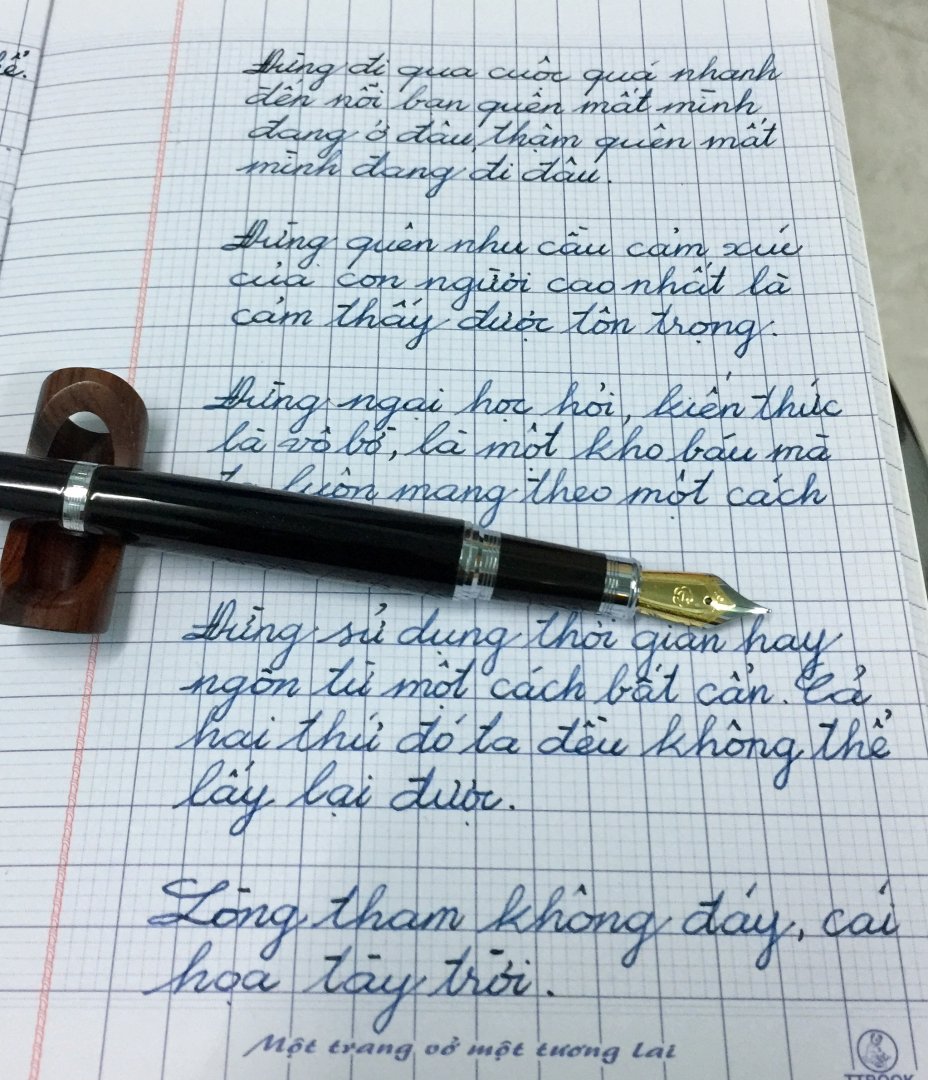 ể.
Đừng đi qua cuôc quá nhanh
đến nỗi bạn quên mất mình
đang ở đâu, thậm quên mất
mình đang đi đâu.
Đừng quên nhu cầu cảm xúc
của con người cao nhất là
cảm thấy được tôn trọng.
Đừng ngại học hỏi, kiến thức
là vô bờ, là một kho báu mà
ta luôn mang theo một cách
Đừng sử dụng thời gian hay
ngôn từ một cách bất cẩn. Cả
hai thứ đó ta đều không thể
lấy lại được.
Lòng tham không đáy, cái
họa tày trời.
Một trang vở một tương lai